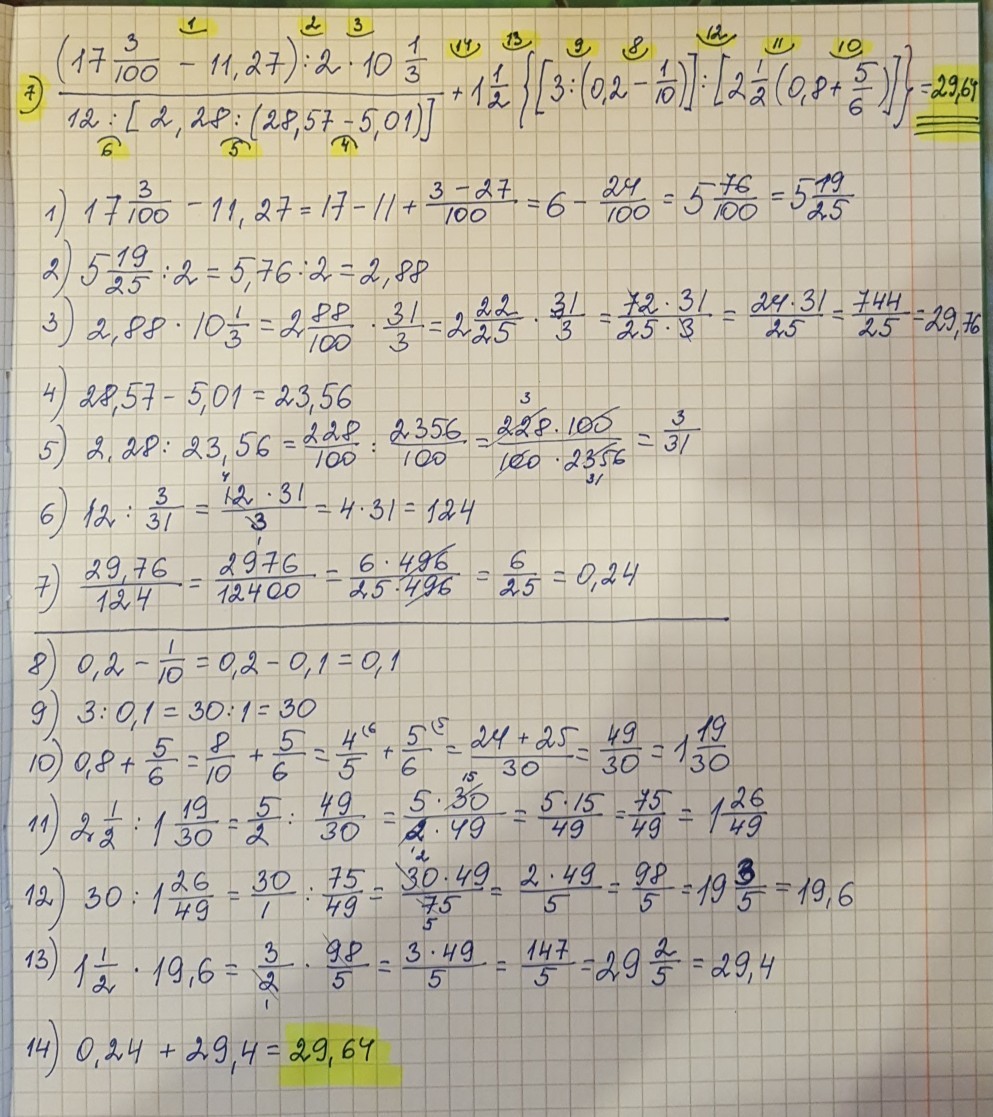 1 2 3 14 13 9 8 12 11 10
7) (17 3/100 - 11,27) : 2 · 10 1/3 / 12 : [2,28 : (28,57 - 5,01)] + 1 1/2 {[3 : (0,2 - 1/10)] : [2 1/2 (0,8 + 5/6)]} = 29,64
6 5 4
1) 17 3/100 - 11,27 = 17 - 11 + (3 - 27)/100 = 6 - 24/100 = 5 76/100 = 5 19/25
2) 5 19/25 : 2 = 5,76 : 2 = 2,88
3) 2,88 · 10 1/3 = 2 88/100 · 31/3 = 2 22/25 · 31/3 = 72 · 31/25 · 3 = 24 · 31/25 = 744/25 = 29,76
4) 28,57 - 5,01 = 23,56
5) 2,28 : 23,56 = 228/100 : 2356/100 = 228 · 100/100 · 2356 (3, 31) = 3/31
6) 12 : 3/31 = 12 · 31/3 (4, 1) = 4 · 31 = 124
7) 29,76/124 = 2976/12400 = 6 · 496/25 · 496 = 6/25 = 0,24
8) 0,2 - 1/10 = 0,2 - 0,1 = 0,1
9) 3 : 0,1 = 30 : 1 = 30
10) 0,8 + 5/6 = 8/10 + 5/6 = 4/5 (6 + 5/6 (5 = 24 + 25/30 = 49/30 = 1 19/30
11) 2 1/2 : 1 19/30 = 5/2 : 49/30 = 5 · 30/2 · 49 (15, 1) = 5 · 15/49 = 75/49 = 1 26/49
12) 30 : 1 26/49 = 30/1 : 75/49 = 30 · 49/75 (2, 5) = 2 · 49/5 = 98/5 = 19 3/5 = 19,6
13) 1 1/2 · 19,6 = 3/2 · 98/5 (1) = 3 · 49/5 = 147/5 = 29 2/5 = 29,4
14) 0,24 + 29,4 = 29,64